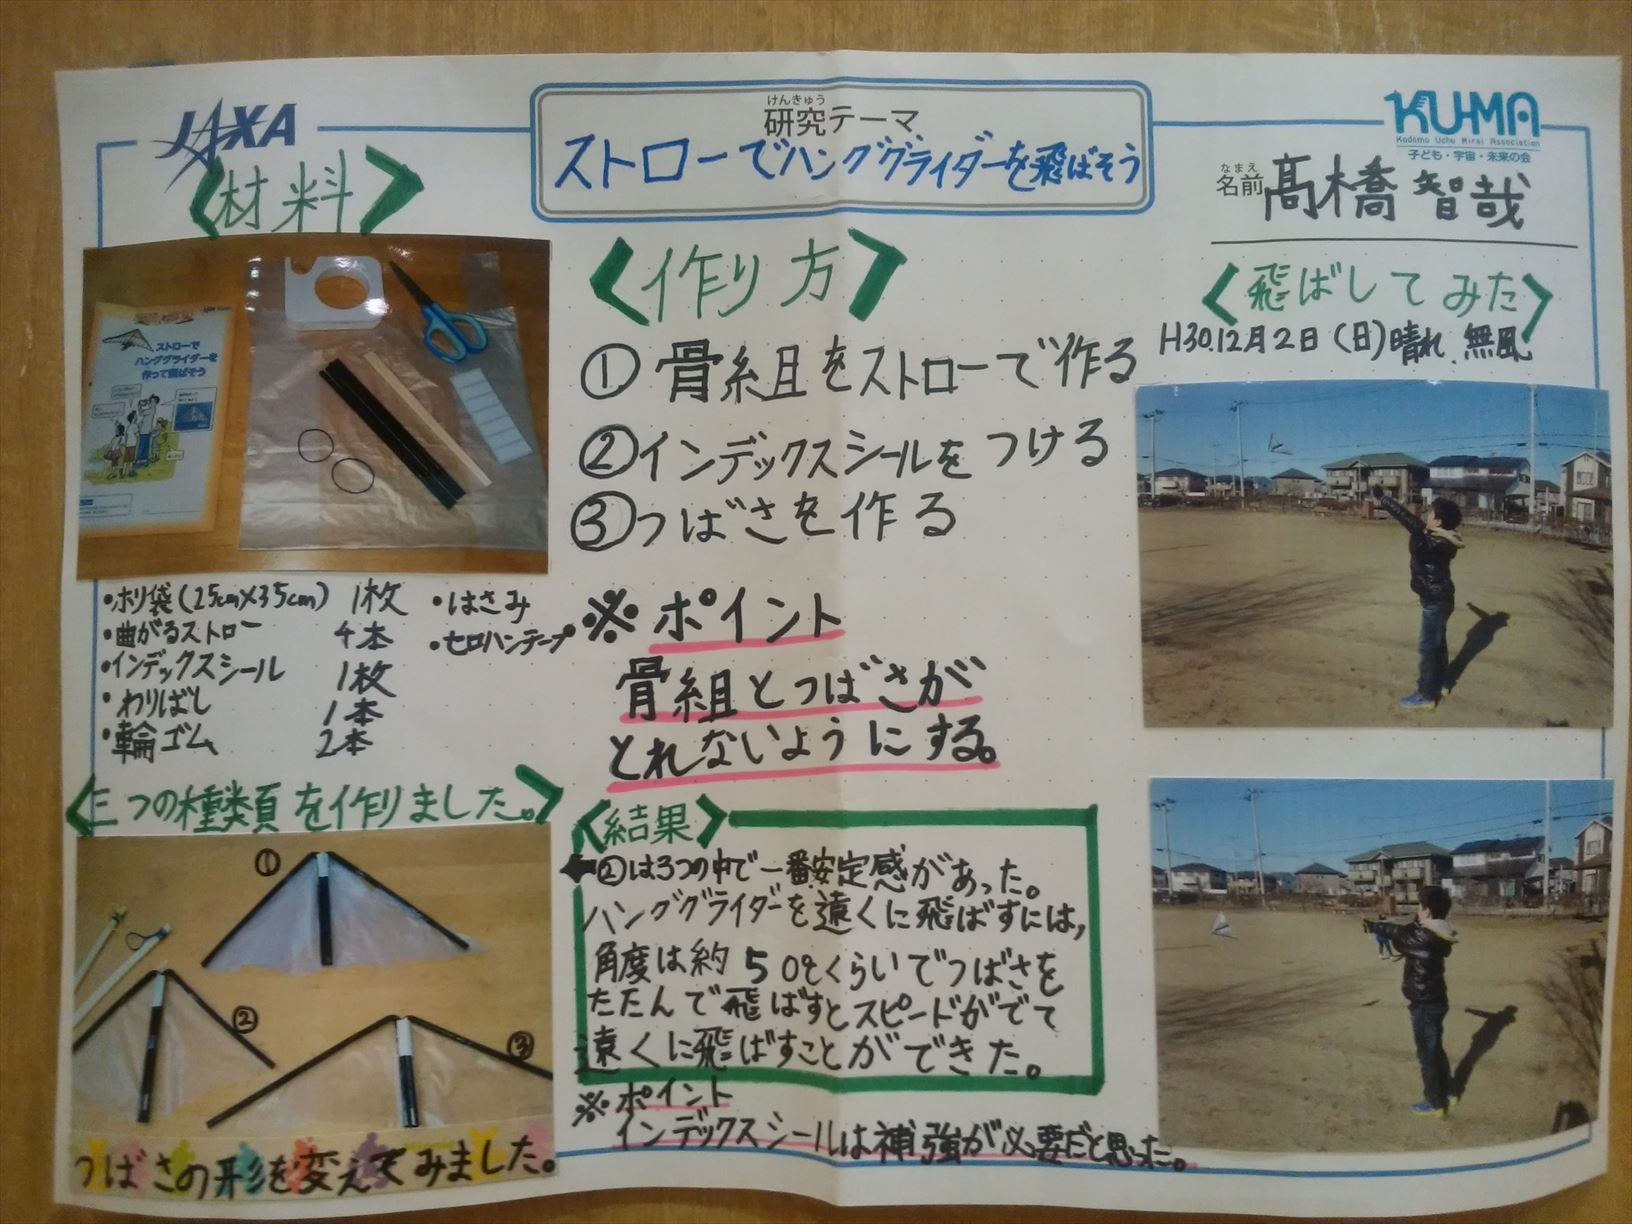 JAXA
けんきゅう
研究テーマ
ストローでハンググライダーを飛ばそう
KU-MA
Kodomo Uchu Mirai Association
子ども・宇宙・未来の会
なまえ
名前 髙橋 智哉
〈材料〉
ストローで
ハンググライダーを
作って飛ばそう
・ポリ袋(25cm×35cm) 1枚
・曲がるストロー 4本
・インデックスシール 1枚
・わりばし 1本
・輪ゴム 2本
・はさみ
・セロハンテープ
〈三つの種類を作りました。〉
①
②
③
つばさの形を変えてみました。
〈作り方〉
①骨組をストローで作る
②インデックスシールをつける
③つばさを作る
※ポイント
骨組とつばさが
とれないようにする。
〈結果〉
②は3つの中で一番安定感があった。
ハンググライダーを遠くに飛ばすには,
角度は約50°くらいでつばさを
たたんで飛ばすとスピードがでて
遠くに飛ばすことができた。
※ポイント
インデックスシールは補強が必要だと思った。
〈飛ばしてみた〉
H30.12月2日(日)晴れ 無風